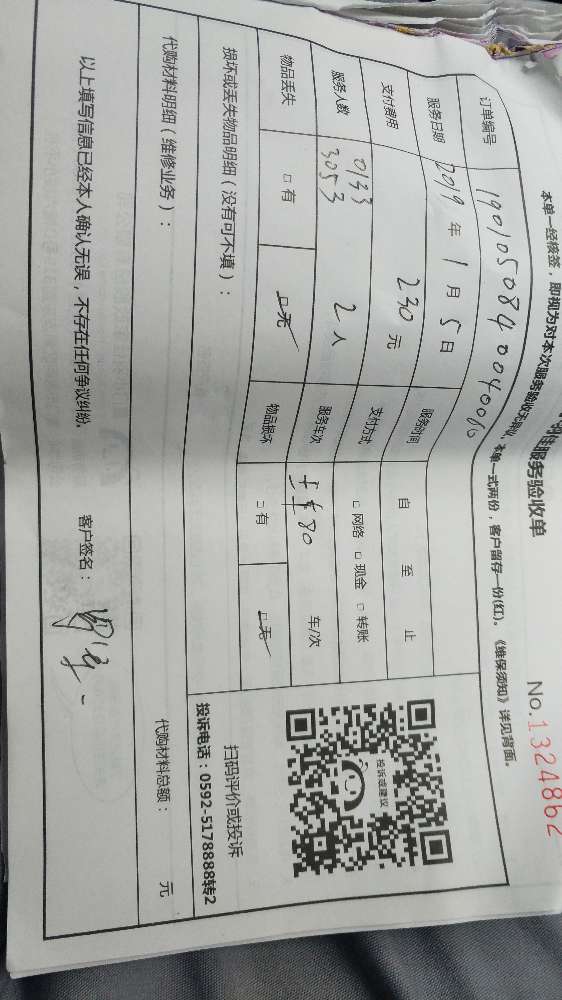 服务验收单
No.1324862
本单一经核签，即视为对本次服务验收无异议，本单一式两份，客户留存一份(红)。《维保须知》详见背面。
订单编号 190105084004006
服务日期 2019 年 1 月 5 日 服务时间 自 至 止
支付费用 230 元 支付方式 □ 网络 □ 现金 □ 转账
服务人数 0133 3053 2 人 服务车次 80 车/次
物品丢失 □ 有 □ 无 物品损坏 □ 有 □ 无
投诉或建议
扫码评价或投诉
投诉电话：0592-5178888转2
损坏或丢失物品明细（没有可不填）：
代购材料明细（维修业务）： 代购材料总额： 元
以上填写信息已经本人确认无误，不存在任何争议纠纷。 客户签名：